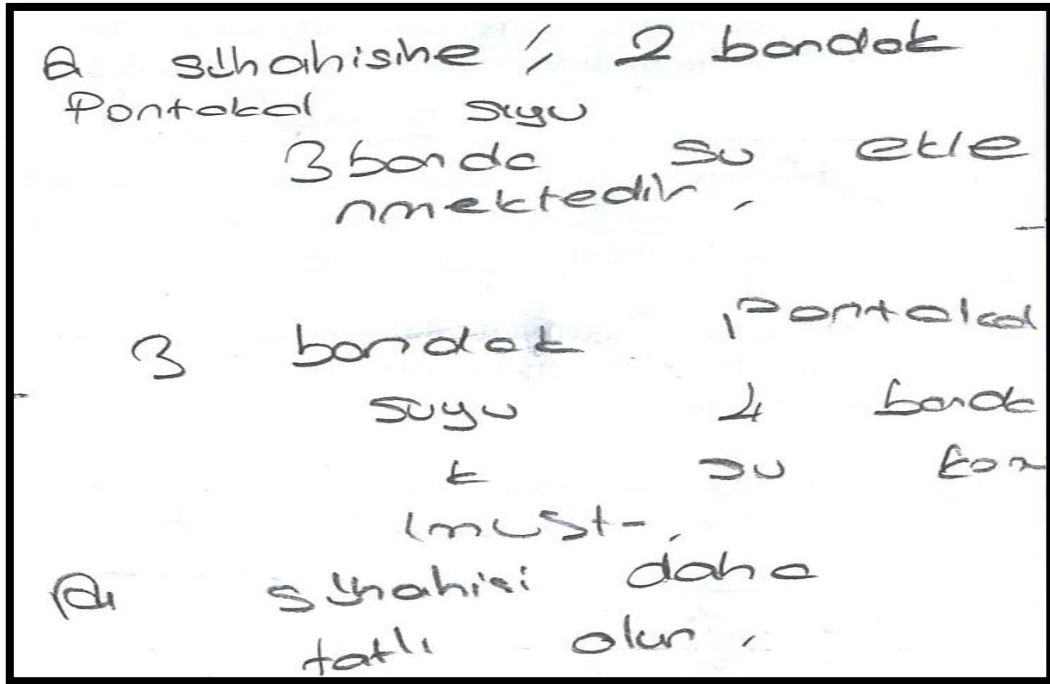 a sürahisine ; 2 bardak
Portakal suyu
3 barda su ekle
nmektedir,
3 bardak portakal
suyu 4 barda
k su kon
muşt-,
sürahisi daha
tatlı olur,